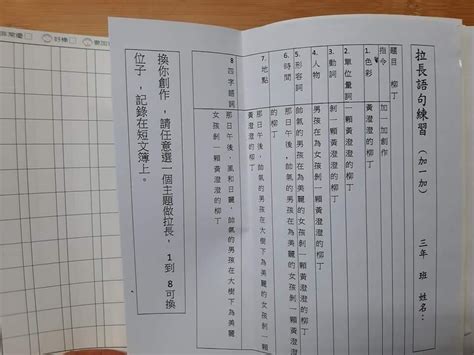 拉長語句練習（加一加） 三年 班 姓名：
題目 柳丁
指令 加一加創作
1.色彩 黃澄澄的柳丁
2.單位量詞 一顆黃澄澄的柳丁
3.動詞 剝一顆黃澄澄的柳丁
4.人物 男孩在為女孩剝一顆黃澄澄的柳丁
5.形容詞 帥氣的男孩在為美麗的女孩剝一顆黃澄澄的柳丁
6.時間 那日午後，帥氣的男孩在為美麗的女孩剝一顆黃澄澄
的柳丁
7.地點 那日午後，帥氣的男孩在大樹下為美麗的女孩剝一顆
黃澄澄的柳丁
8.四字語詞 那日午後，風和日麗，帥氣的男孩在大樹下為美麗的
女孩剝一顆黃澄澄的柳丁
換你創作，請任意選一個主題做拉長，1到8可換
位子，記錄在短文簿上。
非常優 好棒